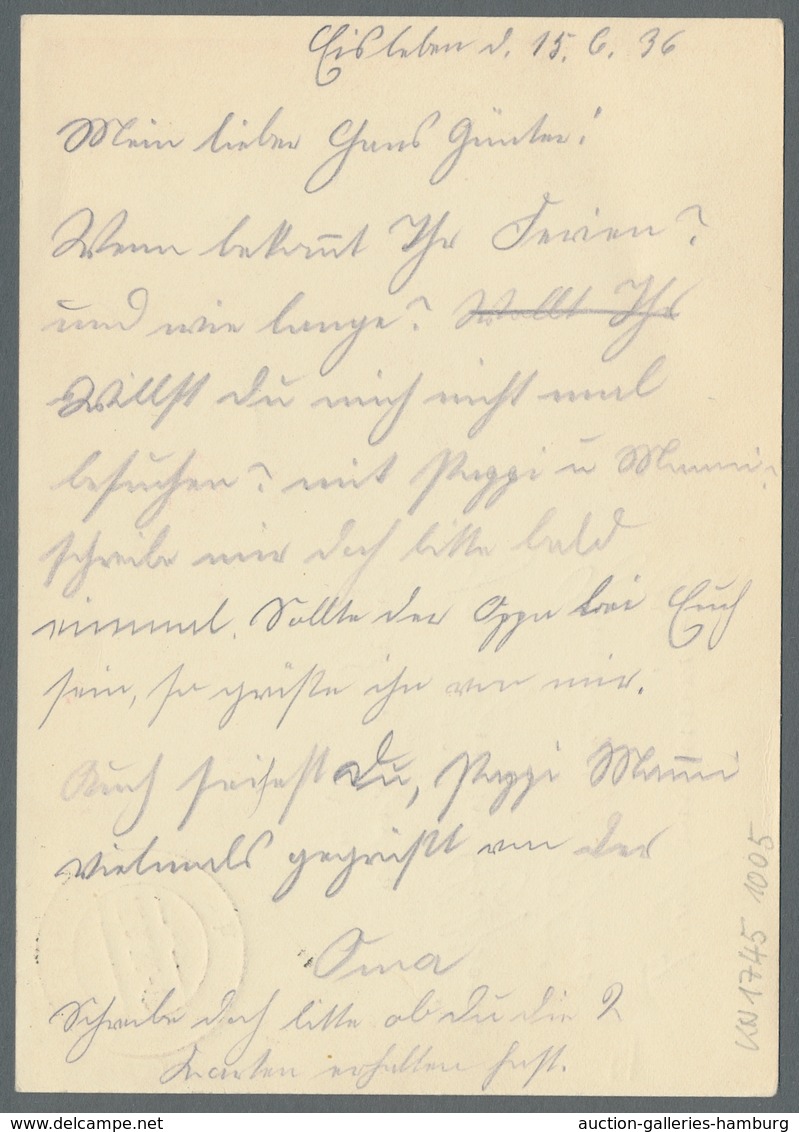 Eisleben d. 15. 6. 36
Mein lieber Hans Günter!
Wenn bekom̅t Ihr Ferien?
und wie lange? ~~Wollt Ihr~~
Willst du mich nicht mal
besuchen? mit Pappi u Mammi?
schreibe mir doch bitte bald
einmal. Sollte der Oppa bei Euch
sein, so grüße ihn von mir.
Auch seihest Du, Pappi Mam̅i
vielmals gegrüßt von der
Oma
Schreibe doch bitte ob du die 2
Karten erhalten hast.
KN 1745 1005
auction-galleries-hamburg